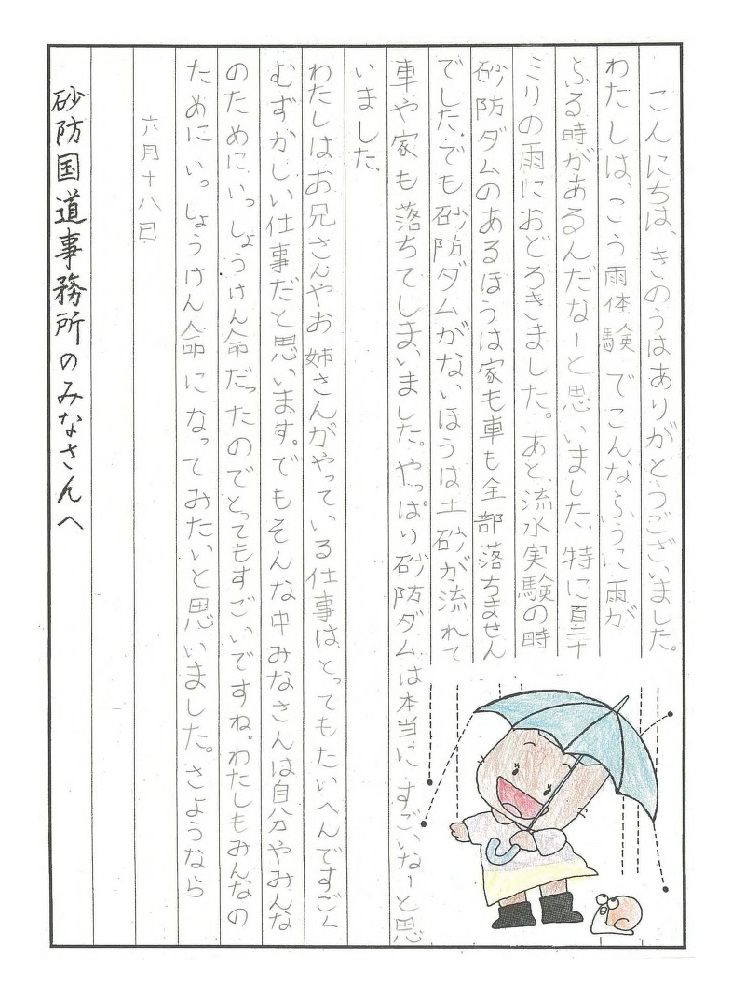 こんにちは、きのうはありがとうございました。
わたしは、こう雨体験でこんなふうに雨が
ふる時があるんだなーと思いました。特に百三十
ミリの雨におどろきました。あと、流水実験の時
砂防ダムのあるほうは家も車も全部落ちません
でした。でも砂防ダムがないほうは土砂が流れて
車や家も落ちてしまいました。やっぱり砂防ダムは本当にすごいなーと思
いました。
わたしはお兄さんやお姉さんがやっている仕事は、とってもたいへんですごく
むずかしい仕事だと思います。でもそんな中みなさんは自分やみんな
のためにいっしょうけん命だったのでとってもすごいですね。わたしもみんなの
ためにいっしょうけん命になってみたいと思いました。さようなら
六月十八日
砂防国道事務所のみなさんへ